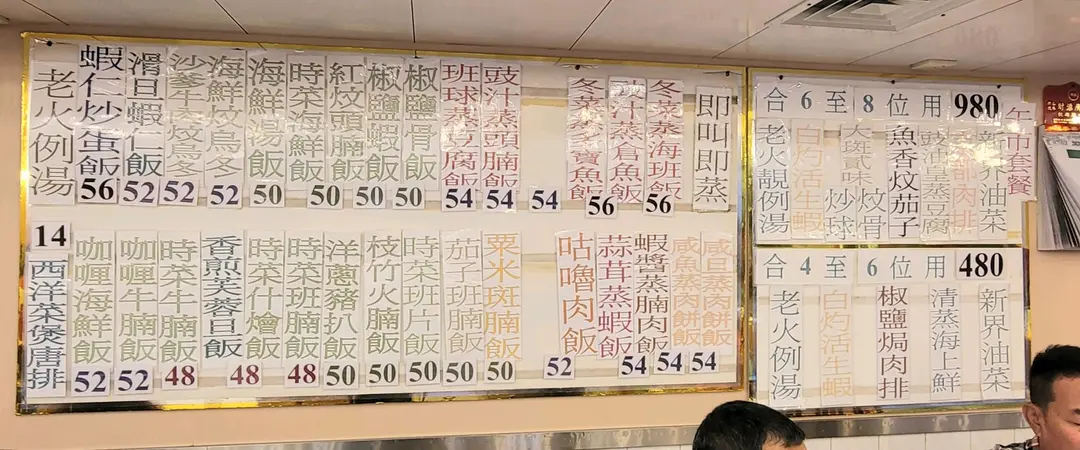 老火例湯
蝦仁炒蛋飯
56
滑旦蝦仁飯
52
沙爹牛炆烏冬
52
海鮮炆烏冬
52
海鮮湯飯
50
時菜海鮮飯
50
紅炆班腩飯
50
椒鹽蝦飯
50
椒鹽骨飯
50
班球蒸豆腐飯
54
豉汁蒸頭腩飯
54
54
冬菜蒸多寶魚飯
豉汁蒸倉魚飯
56
冬菜蒸海班飯
56
即叫即蒸
14
西洋菜煲唐排
咖喱海鮮飯
52
咖喱牛腩飯
52
時菜牛腩飯
48
香煎芙蓉旦飯
48
時菜什燴飯
48
時菜班腩飯
50
洋蔥豬扒飯
50
枝竹火腩飯
50
時菜班片飯
50
茄子班腩飯
50
粟米斑腩飯
50
咕嚕肉飯
52
蒜茸蒸蝦飯
54
蝦醬蒸腩肉飯
54
咸魚蒸肉餅飯
54
咸旦蒸肉餅飯
午市套餐
合6至8位用980
老火靚例湯
白灼活生蝦
大斑貳味 炒球 炆骨
魚香炆茄子
京都肉排
新界油菜
合4至6位用480
老火例湯
白灼活生蝦
椒鹽焗肉排
清蒸海上鮮
新界油菜